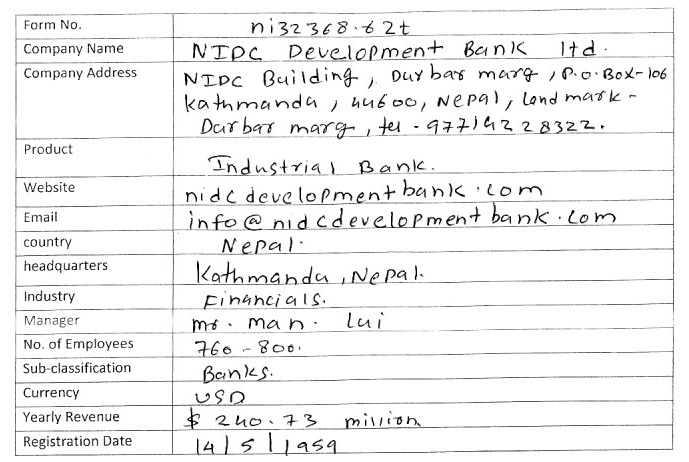 Form No. ni32368.62t
Company Name NIDC Development Bank ltd.
Company Address NIDC Building, Durbar marg, P.O.Box-106
Kathmandu, 44600, Nepal, Land mark -
Durbar marg, tel - 977)4228322.
Product Industrial Bank.
Website nidcdevelopmentbank.com
Email info@nidcdevelopmentbank.com
country Nepal.
headquarters Kathmandu, Nepal.
Industry Financials.
Manager mr. man. lui
No. of Employees 760 - 800.
Sub-classification Banks.
Currency USD
Yearly Revenue $ 240.73 million
Registration Date 14/5/1959